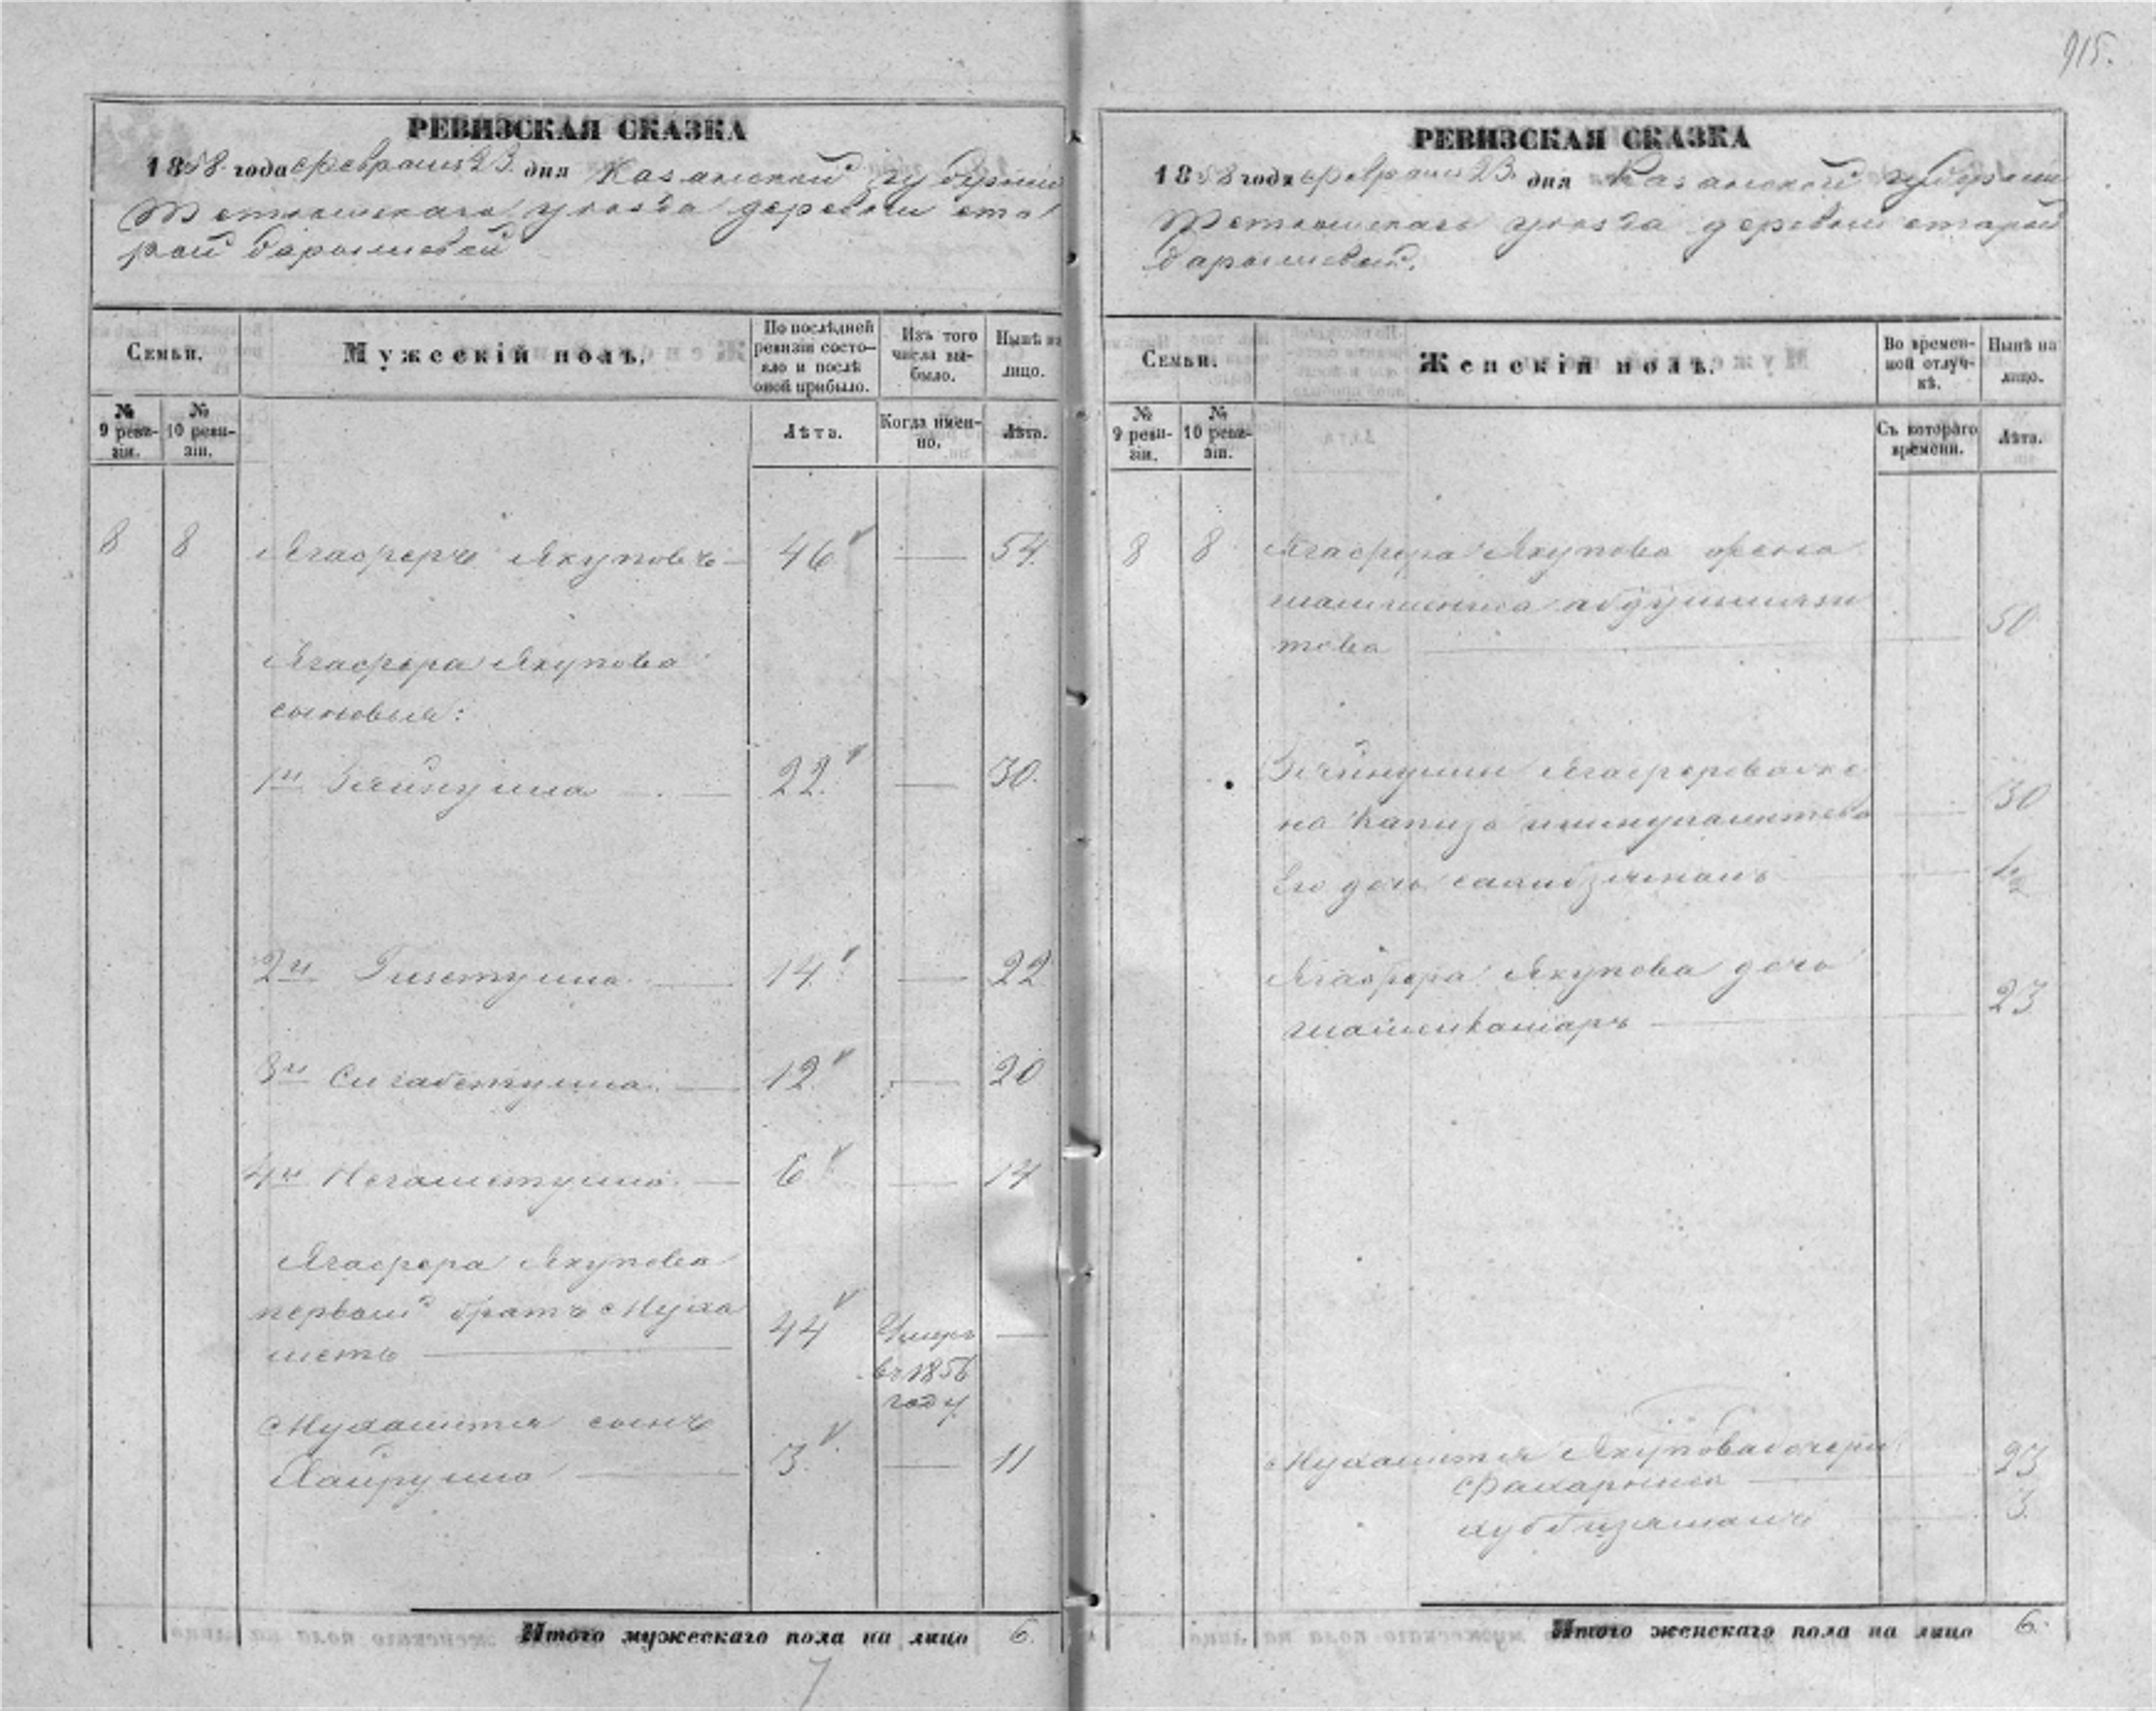 915.
РЕВИЗСКАЯ СКАЗКА
1858 года февраля 23 дня Казанской губернии
Тетюшскаго уѣзда деревни ста
рой барышевой
Семьи.
Мужескій полъ.
По послѣдней ревизіи состояло и послѣ оной прибыло.
Изъ того числа выбыло.
Нынѣ на лицо.
№ 9 ревизіи.
№ 10 ревизіи.
Лѣта.
Когда именно.
Лѣта.
8 8 Ягафаръ Якуповъ 46 — 54.
Ягафера Якупова
сыновья:
1й Зейнулла 22. — 30.
2й Гизетулла 14. — 22
3й Сигабетулла 12. — 20
4й Негаметулла 6 — 14
Ягафера Якупова
первый братъ Муха
метъ 44 Умеръ —
въ 1856
году
Мухаметя сынъ
Хайрулла 3. — 11
Итого мужескаго пола на лицо 6.
7
РЕВИЗСКАЯ СКАЗКА
1858 года февраля 23. дня Казанской губернии
Тетюшскаго уѣзда деревни старой
барышевой.
Семьи.
Женскій полъ.
Во временной отлучкѣ.
Нынѣ на лицо.
№ 9 ревизіи.
№ 10 ревизіи.
Съ котораго времени.
Лѣта.
8 8 Ягафера Якупова жена
50
това
Зейнуллы Ягаферова же
на 30
Его дочь 1/2
Ягафера Якупова дочь
23
Мухаметя Якупова дочери
23
3.
Итого женскаго пола на лицо 6.